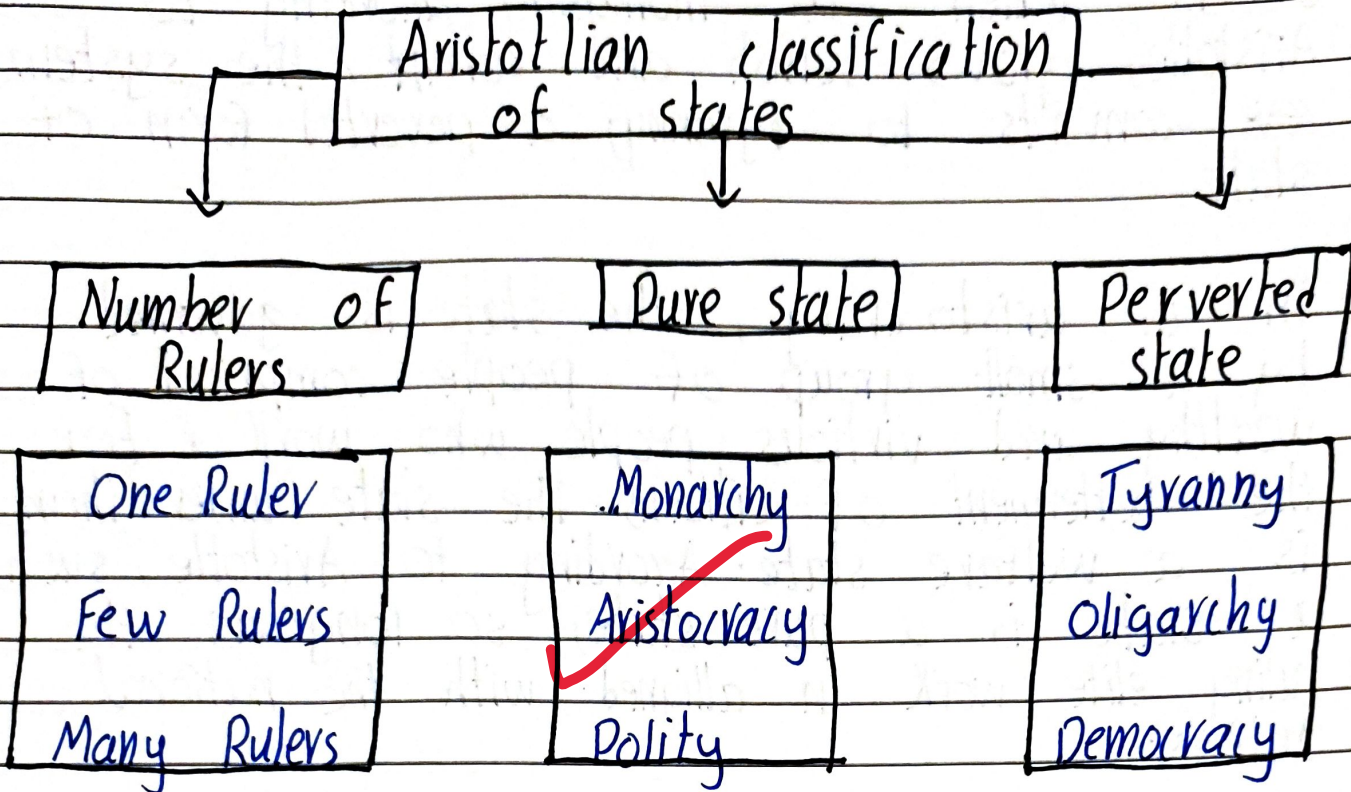 Aristotlian classification
of states
Number of
Rulers
Pure state
Perverted
state
One Ruler
Few Rulers
Many Rulers
Monarchy
Aristocracy
Polity
Tyranny
Oligarchy
Democracy